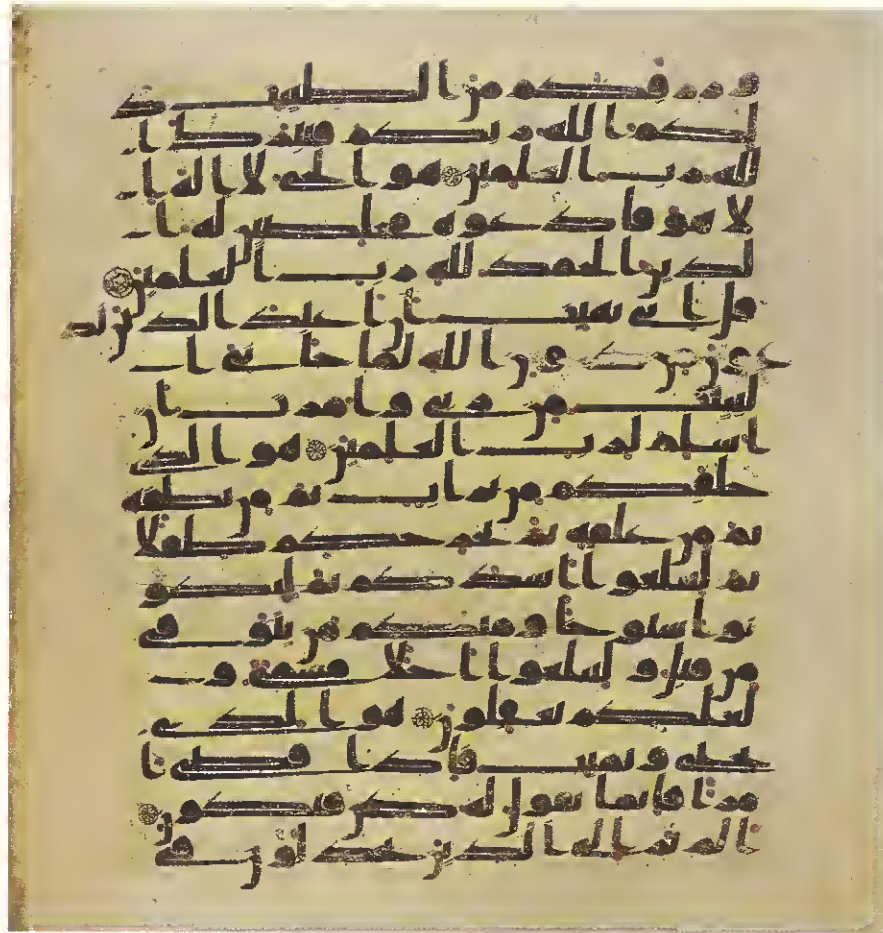 و رزقكم من الطيبت ذ
لكم الله ربكم فتبرك ا
لله رب العلمين هو الحى لا اله ا
لا هو فادعوه مخلصين له ا
لدين الحمد لله رب العلمين
قل انى نهيت ان اعبد الذين تد
عون من دون الله لما جانى ا
لبينت من ربى و امرت ان
اسلم لرب العلمين هو الذى
خلقكم من تراب ثم من نطفه
ثم من علقه ثم يخرجكم طفلا
ثم لتبلغوا اشدكم ثم لتكو
نوا شيوخا و منكم من يتوفى
من قبل و لتبلغوا اجلا مسمى و
لعلكم تعقلون هو الذى
يحى و يميت فاذا قضى ا
مرا فانما يقول له كن فيكون
الم تر الى الذين يجدلون فى